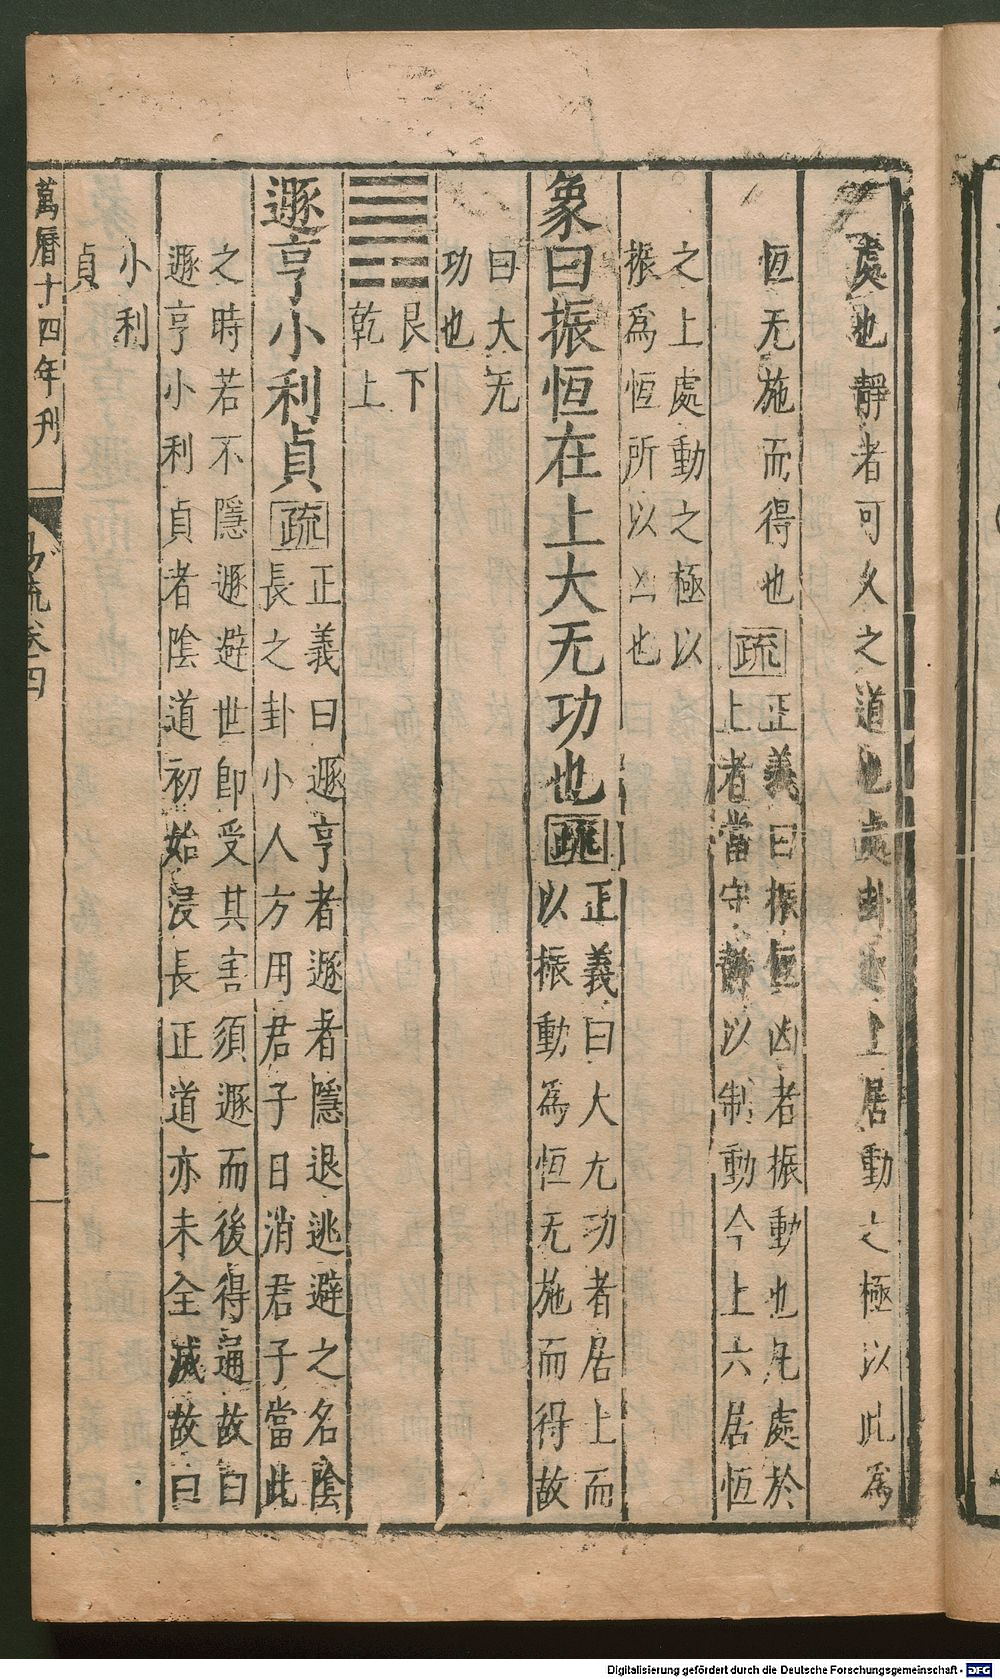 處也靜者可久之道也處卦之上居動之極以此為
恆无施而得也疏
正義曰振恆凶者振動也凡處於
上者當守靜以制動今上六居恆
之上處動之極以
振爲恆所以凶也
象曰振恒在上大无功也疏
正義曰大无功者居上而
以振動爲恒无施而得故
曰大无
功也
艮下
乾上
遯亨小利貞疏
正義曰遯亨者遯者隱退逃避之名陰
長之卦小人方用君子日消君子當此
之時若不隱遯避世卽受其害須遯而後得通故曰
遯亨小利貞者陰道初始浸長正道亦未全滅故曰
小利
貞
萬曆十四年刊
易疏卷四
Digitalisierung gefördert durch die Deutsche Forschungsgemeinschaft - DFG